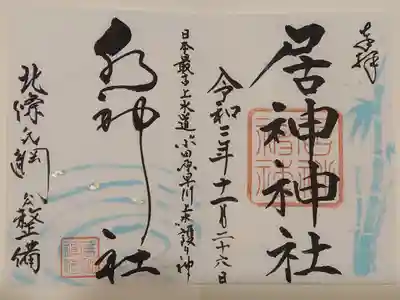 奉拝
居神神社
令和二年十一月二十六日
日本最古上水道小田原早川上水護り神
水神社
北條氏綱公整備